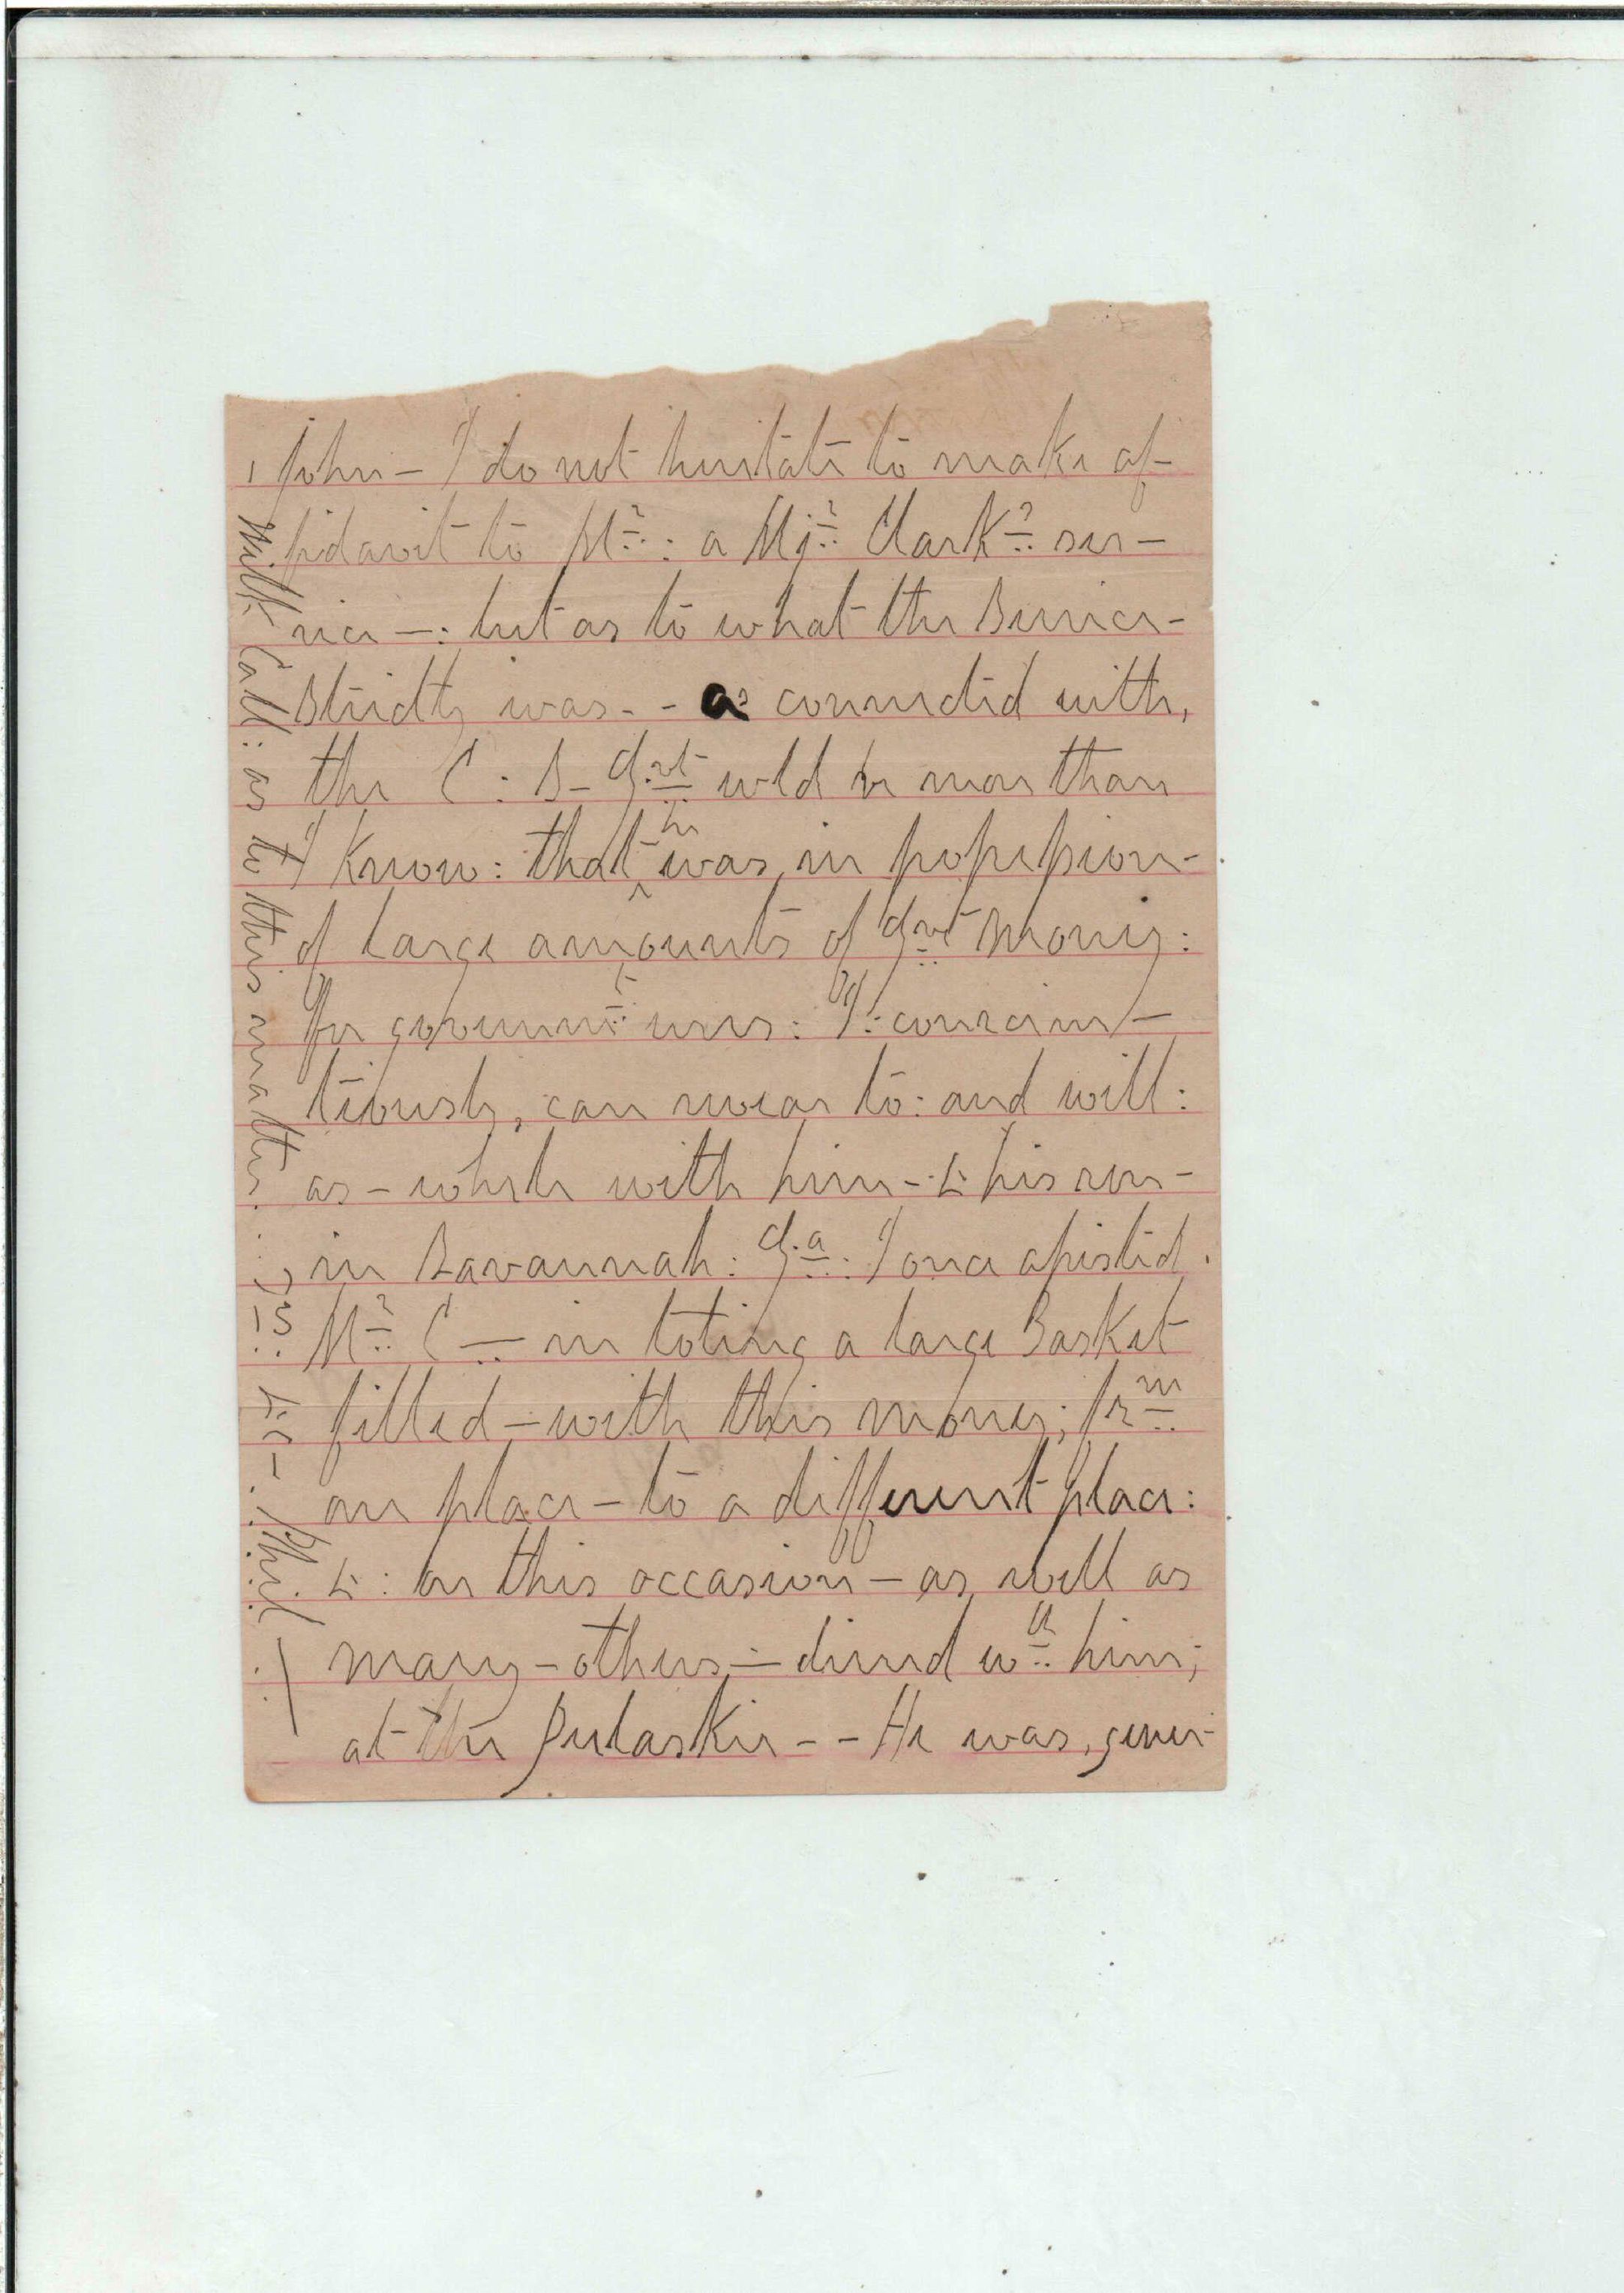 John – I do not hesitate to make af-
fidavit to Mr: a Mjr: Clark's ser-
vice –: but as to what the Service
Strictly was - - as connected with,
the C: S – Gvt wld be more than
I Know: that he was, in possession-
of large amounts of Gvt Money:
for governmt: uses: I: conscien-
tiously, can swear to: and will:
as – while with him – & his son –
in Savannah: Ga: I once assisted.
Mr C — in toting a large Basket
filled – with this money; frm
one place – to a different place:
&: on this occasion – as, well as
many – others, – dined wth him;
at the Pulaski - - He was, gener-
Will Call: as to this matter